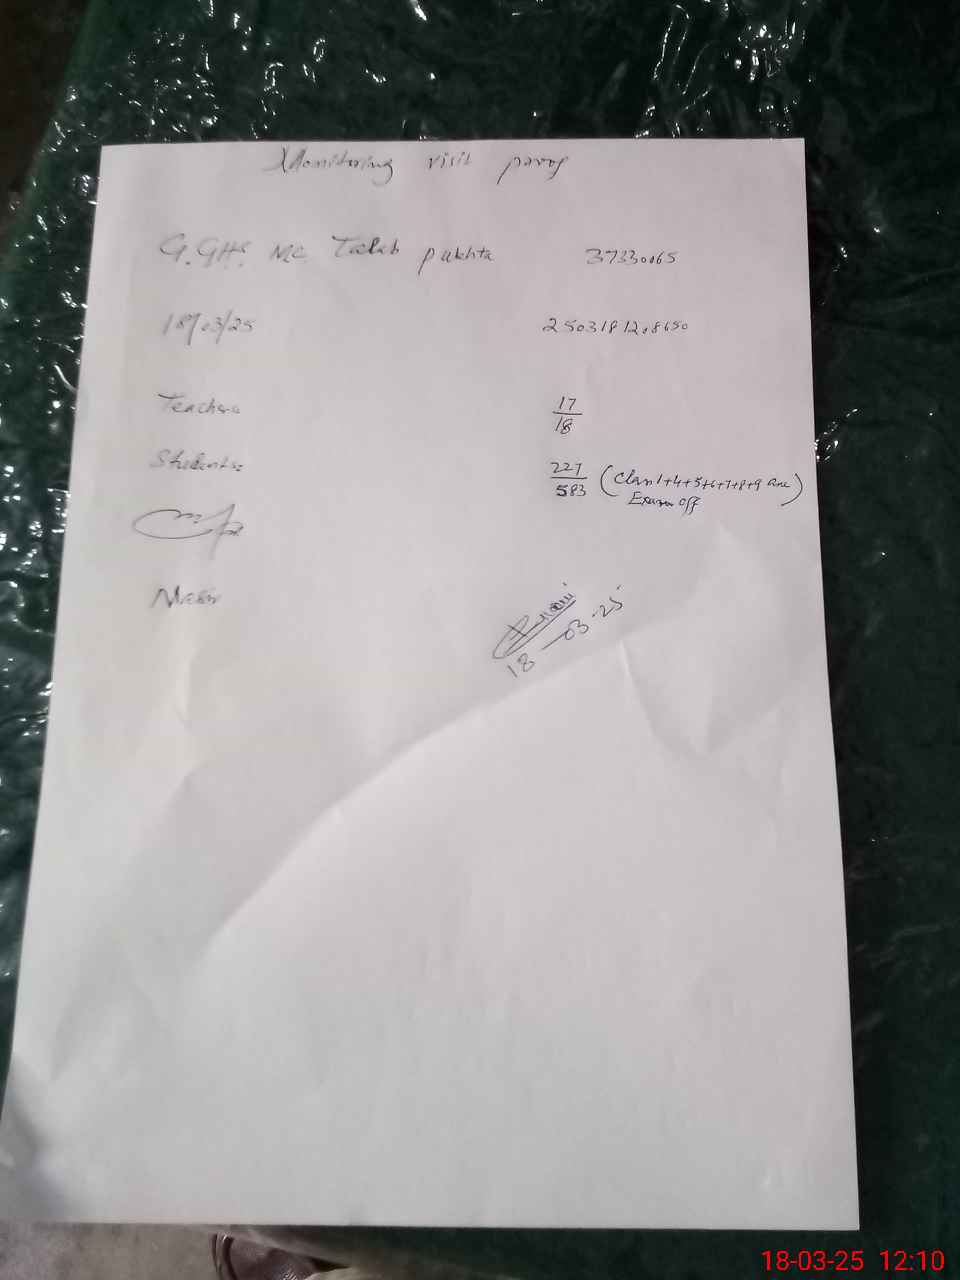 Monitoring visit proof
G.GHS. MC Talab pukhta 37330065
18/03/25 2503181208650
Teachers 17/18
Students: 227/583 (Class 1+4+5+6+7+8+9 are
Exam off)
18-03-25
18-03-25 12:10